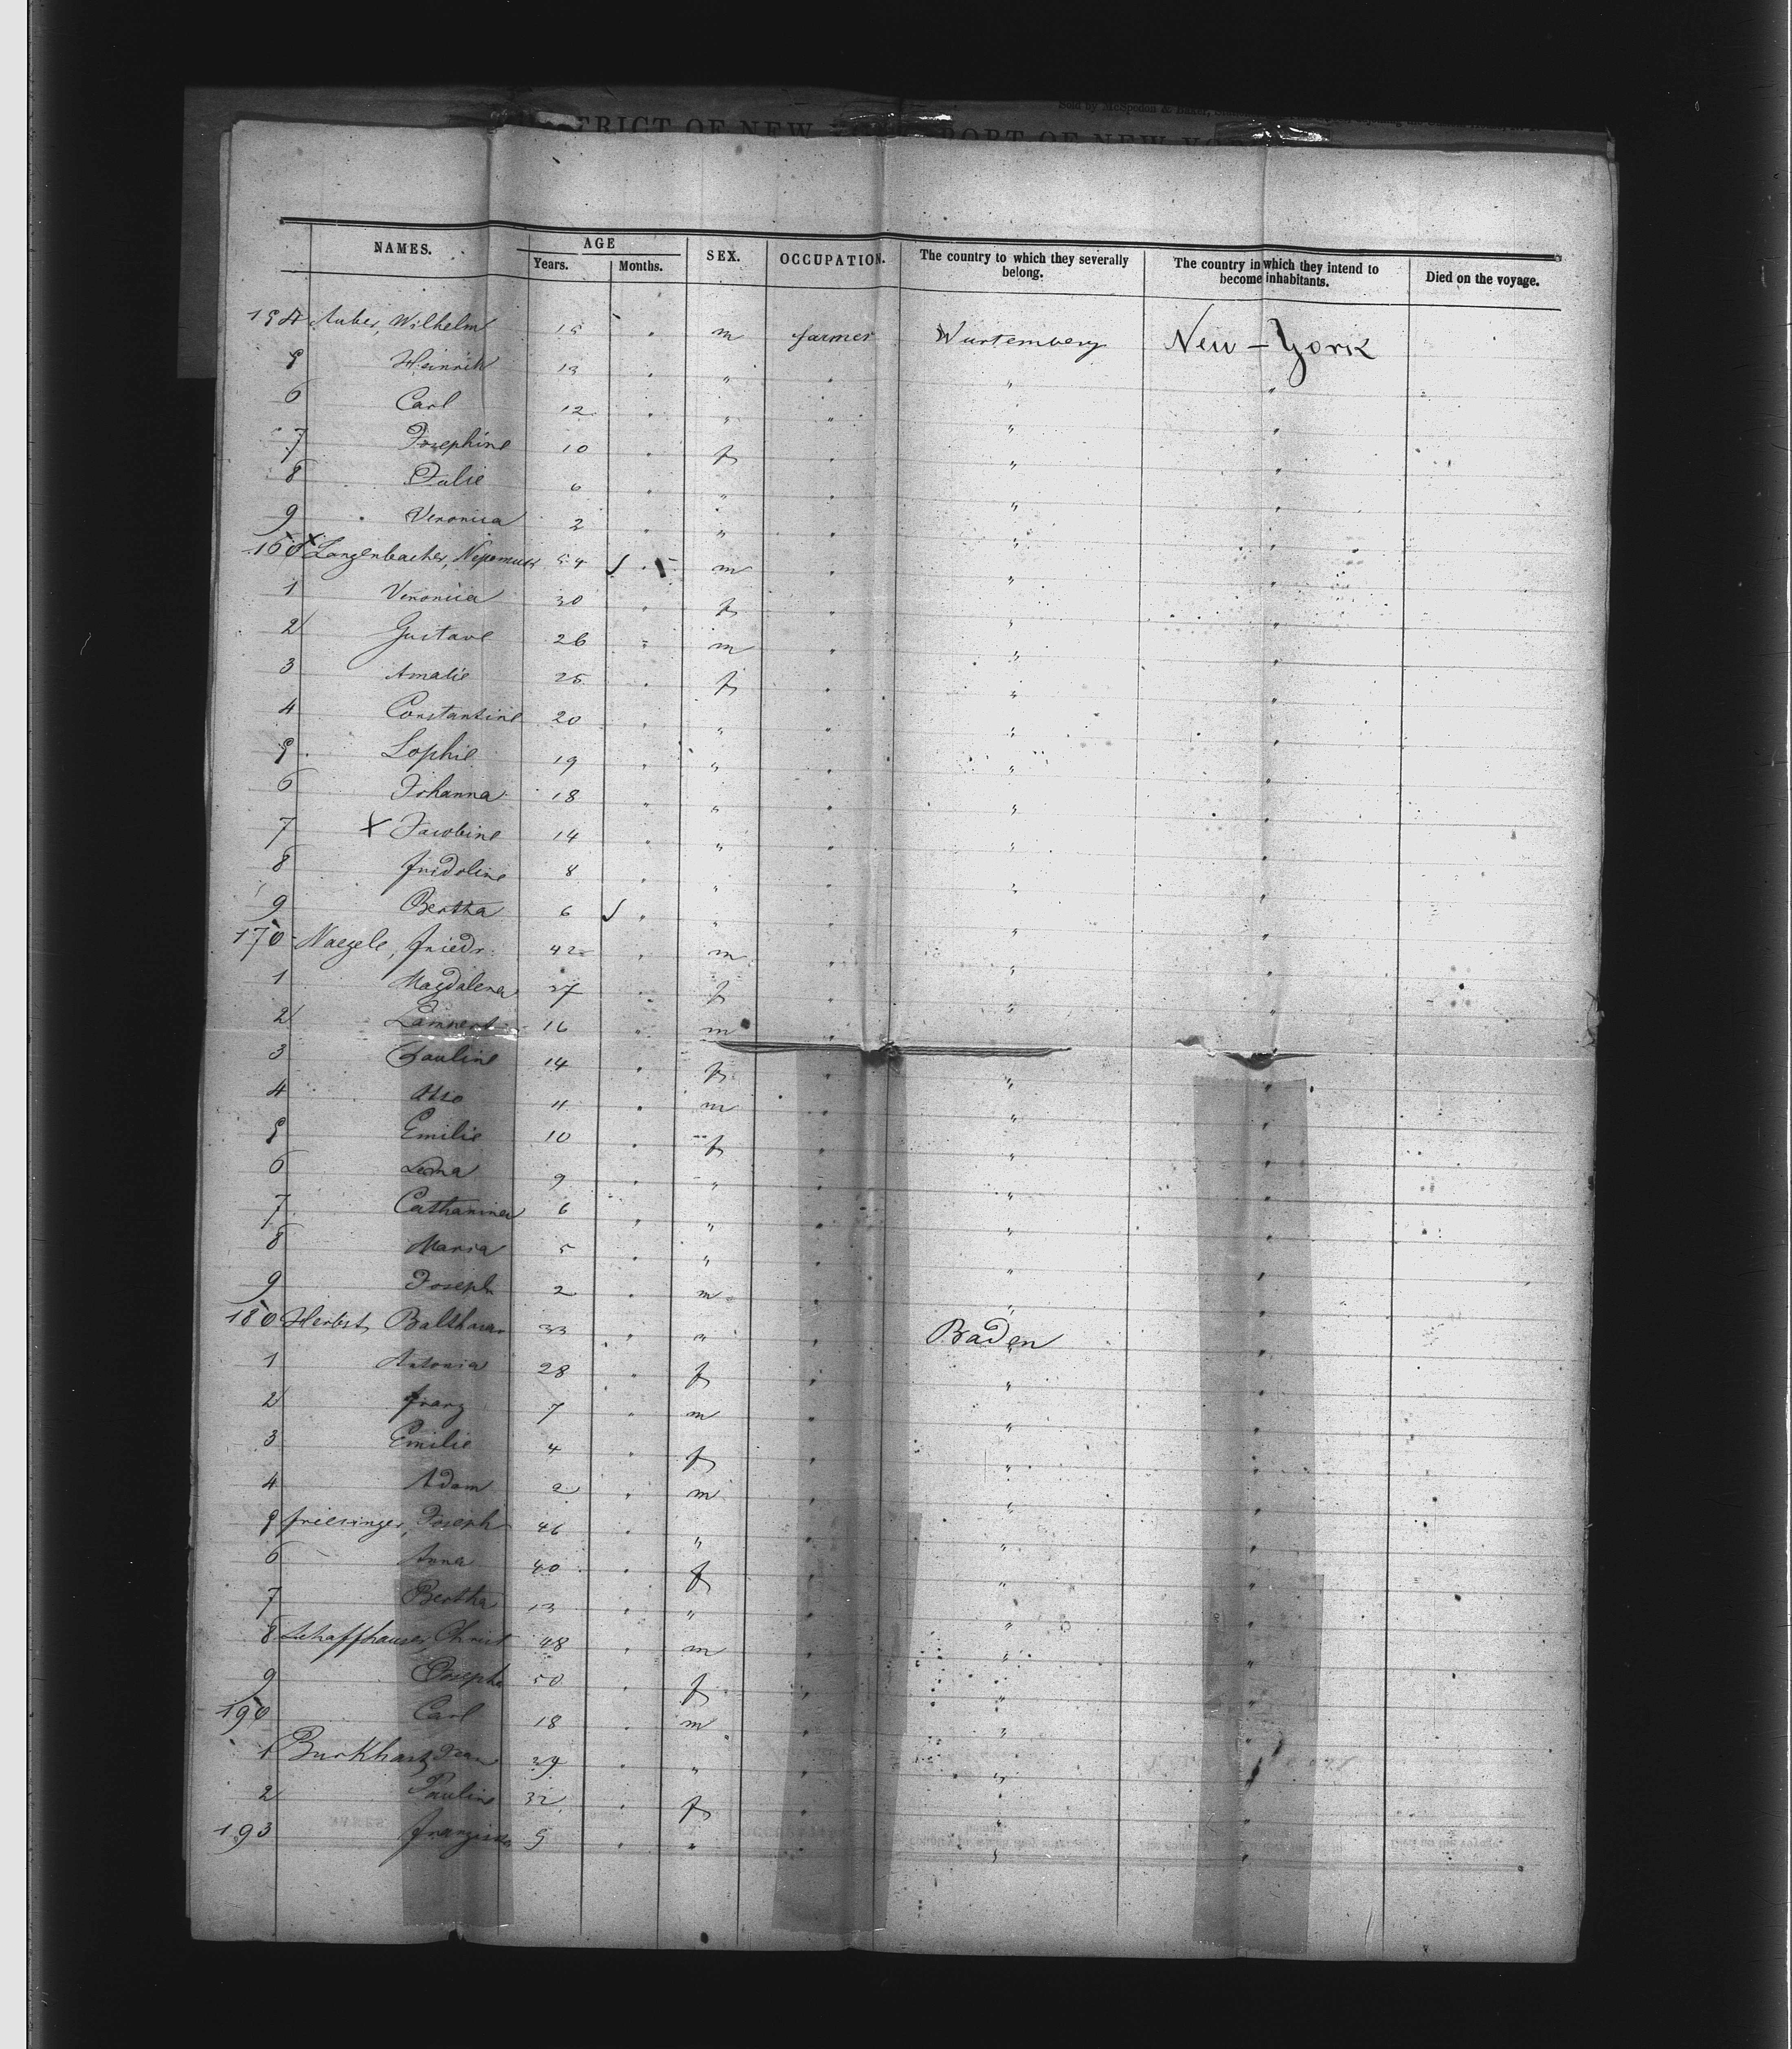 DISTRICT OF NEW YORK PORT OF NEW YORK
NAMES. AGE Years. Months. SEX. OCCUPATION. The country to which they severally belong. The country in which they intend to become inhabitants. Died on the voyage.
154 Auber, Wilhelm 15 " m farmer Wurtemberg New-York
5 Heinrich 13 " " " " "
6 Carl 12 " " " " "
7 Josephine 10 " f " " "
8 Julie 6 " " " " "
9 Veronica 2 " " " " "
160 x Langenbacher, Nepomuk 54 " m " " "
1 Veronica 30 " f " " "
2 Gustave 26 " m " " "
3 Amalie 25 " f " " "
4 Constantine 20 " " " " "
5 Sophie 19 " " " " "
6 Johanna 18 " " " " "
7 x Jacobine 14 " " " " "
8 Fridoline 8 " " " " "
9 Bertha 6 " " " " "
170 Naegele, Friedr. 42 " m " " "
1 Magdalena 37 " f " " "
2 16 " m " " "
3 Pauline 14 " f " " "
4 Otto 11 " m " " "
5 Emilie 10 " f " " "
6 9 " " " " "
7 Catharina 6 " " " " "
8 Maria 5 " " " " "
9 Joseph 2 " m " " "
180 Herbst, Balthasar 33 " " " Baden "
1 Antonia 28 " f " " "
2 Franz 7 " m " " "
3 Emilie 4 " f " " "
4 Adam 2 " m " " "
5 Friesinger, Joseph 46 " " " " "
6 Anna 40 " f " " "
7 Bertha 13 " " " " "
8 Schaffhauser, Christ 48 " m " " "
9 Josepha 50 " f " " "
190 Carl 18 " m " " "
1 Burkhart, Jean 29 " " " " "
2 Pauline 32 " f " " "
193 Franziska 5 " " " " "